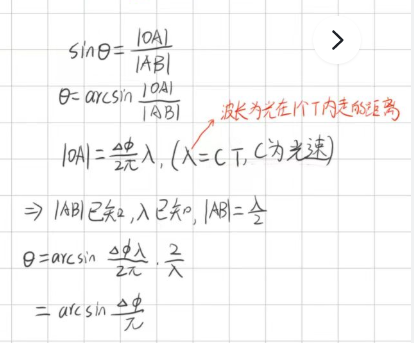 sinθ = |OA| / |AB|
θ = arcsin |OA| / |AB|
波长为光在1个T内走的距离
|OA| = Δφ/2π λ, (λ = CT, C为光速)
⇒ |AB|已知, λ已知, |AB| = λ/2
θ = arcsin Δφλ/2π · 2/λ
= arcsin Δφ/π